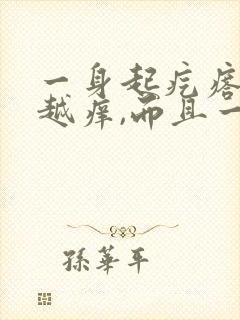 一身起疙瘩
越痒,而且一
孫華平